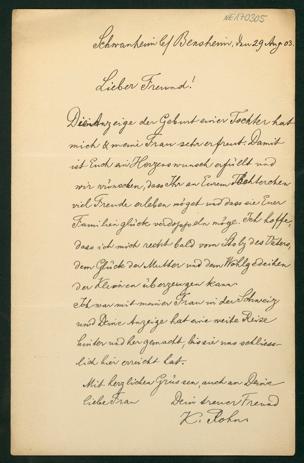 NE170305
Schwanheim b/ Bensheim, den 29 Aug 03.
Lieber Freund!
Die Anzeige der Geburt einer Tochter hat
mich & meine Frau sehr erfreut. Damit
ist Euch ein Herzenswunsch erfüllt und
wir wünschen, dass Ihr an Eurem Töchterchen
viel Freude erleben möget und dass sie Euer
Familienglück verdoppeln möge. Ich hoffe,
dass ich mich recht bald vom Stolz des Vaters,
dem Glück der Mutter und dem Wohlgedeihen
der Kleinen überzeugen kann.
Ich war mit meiner Frau in der Schweiz
und Deine Anzeige hat eine weite Reise
hinter und her gemacht, bis sie uns schliess-
lich hier erreicht hat.
Mit herzlichen Grüssen, auch an Deine
liebe Frau Dein treuer Freund
K. Rohn